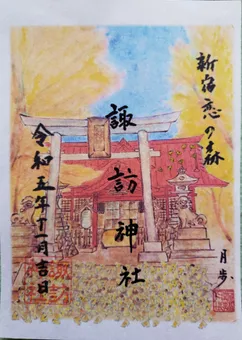 新宿恋の森
諏訪神社
令和五年十一月吉日
月歩